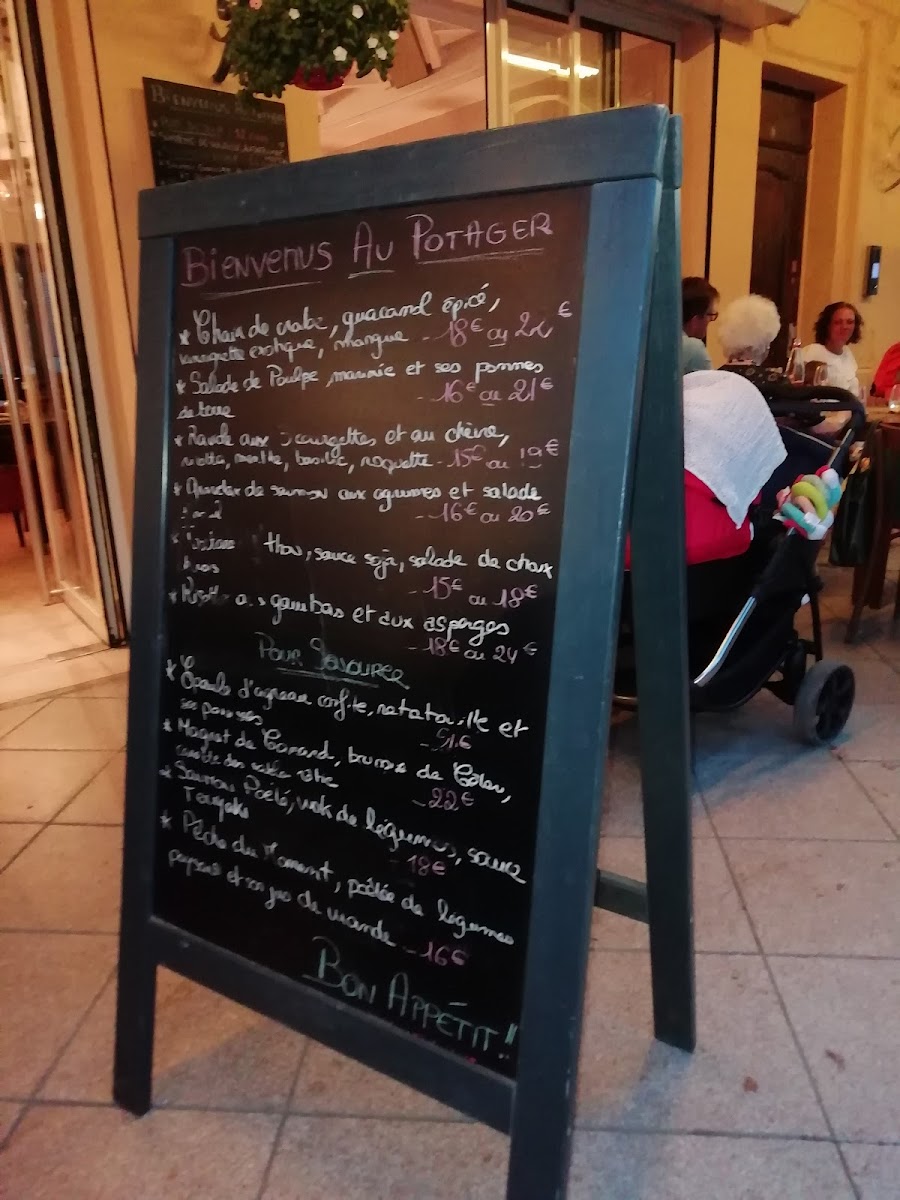 BIENVENUS AU
BIENVENUS AU POTAGER
* Chair de crabe, guacamol épicé,
vinaigrette exotique, mangue - 18€ ou 22€
* Salade de Poulpe marinée et ses pommes
de terre - 16€ ou 21€
* Raviole aux courgettes et au chèvre,
ricotta, menthe, basilic, roquette - 15€ ou 19€
* Gravlax de saumon aux agrumes et salade
- 16€ ou 20€
* thon, sauce soja, salade de choux
- 15€ ou 18€
* Risotto aux gambas et aux asperges
- 18€ ou 24€
POUR SAVOURER
* Epaule d'agneau confite, ratatouille et
ses panisses
* Magret de Canard, brunoise de Céleri,
- 22€
* Saumon Poêlé, wok de légumes, sauce
Teriyaki - 18€
* Pêche du Moment, poêlée de légumes
paysans et son jus de viande - 16€
BON APPÉTIT !!